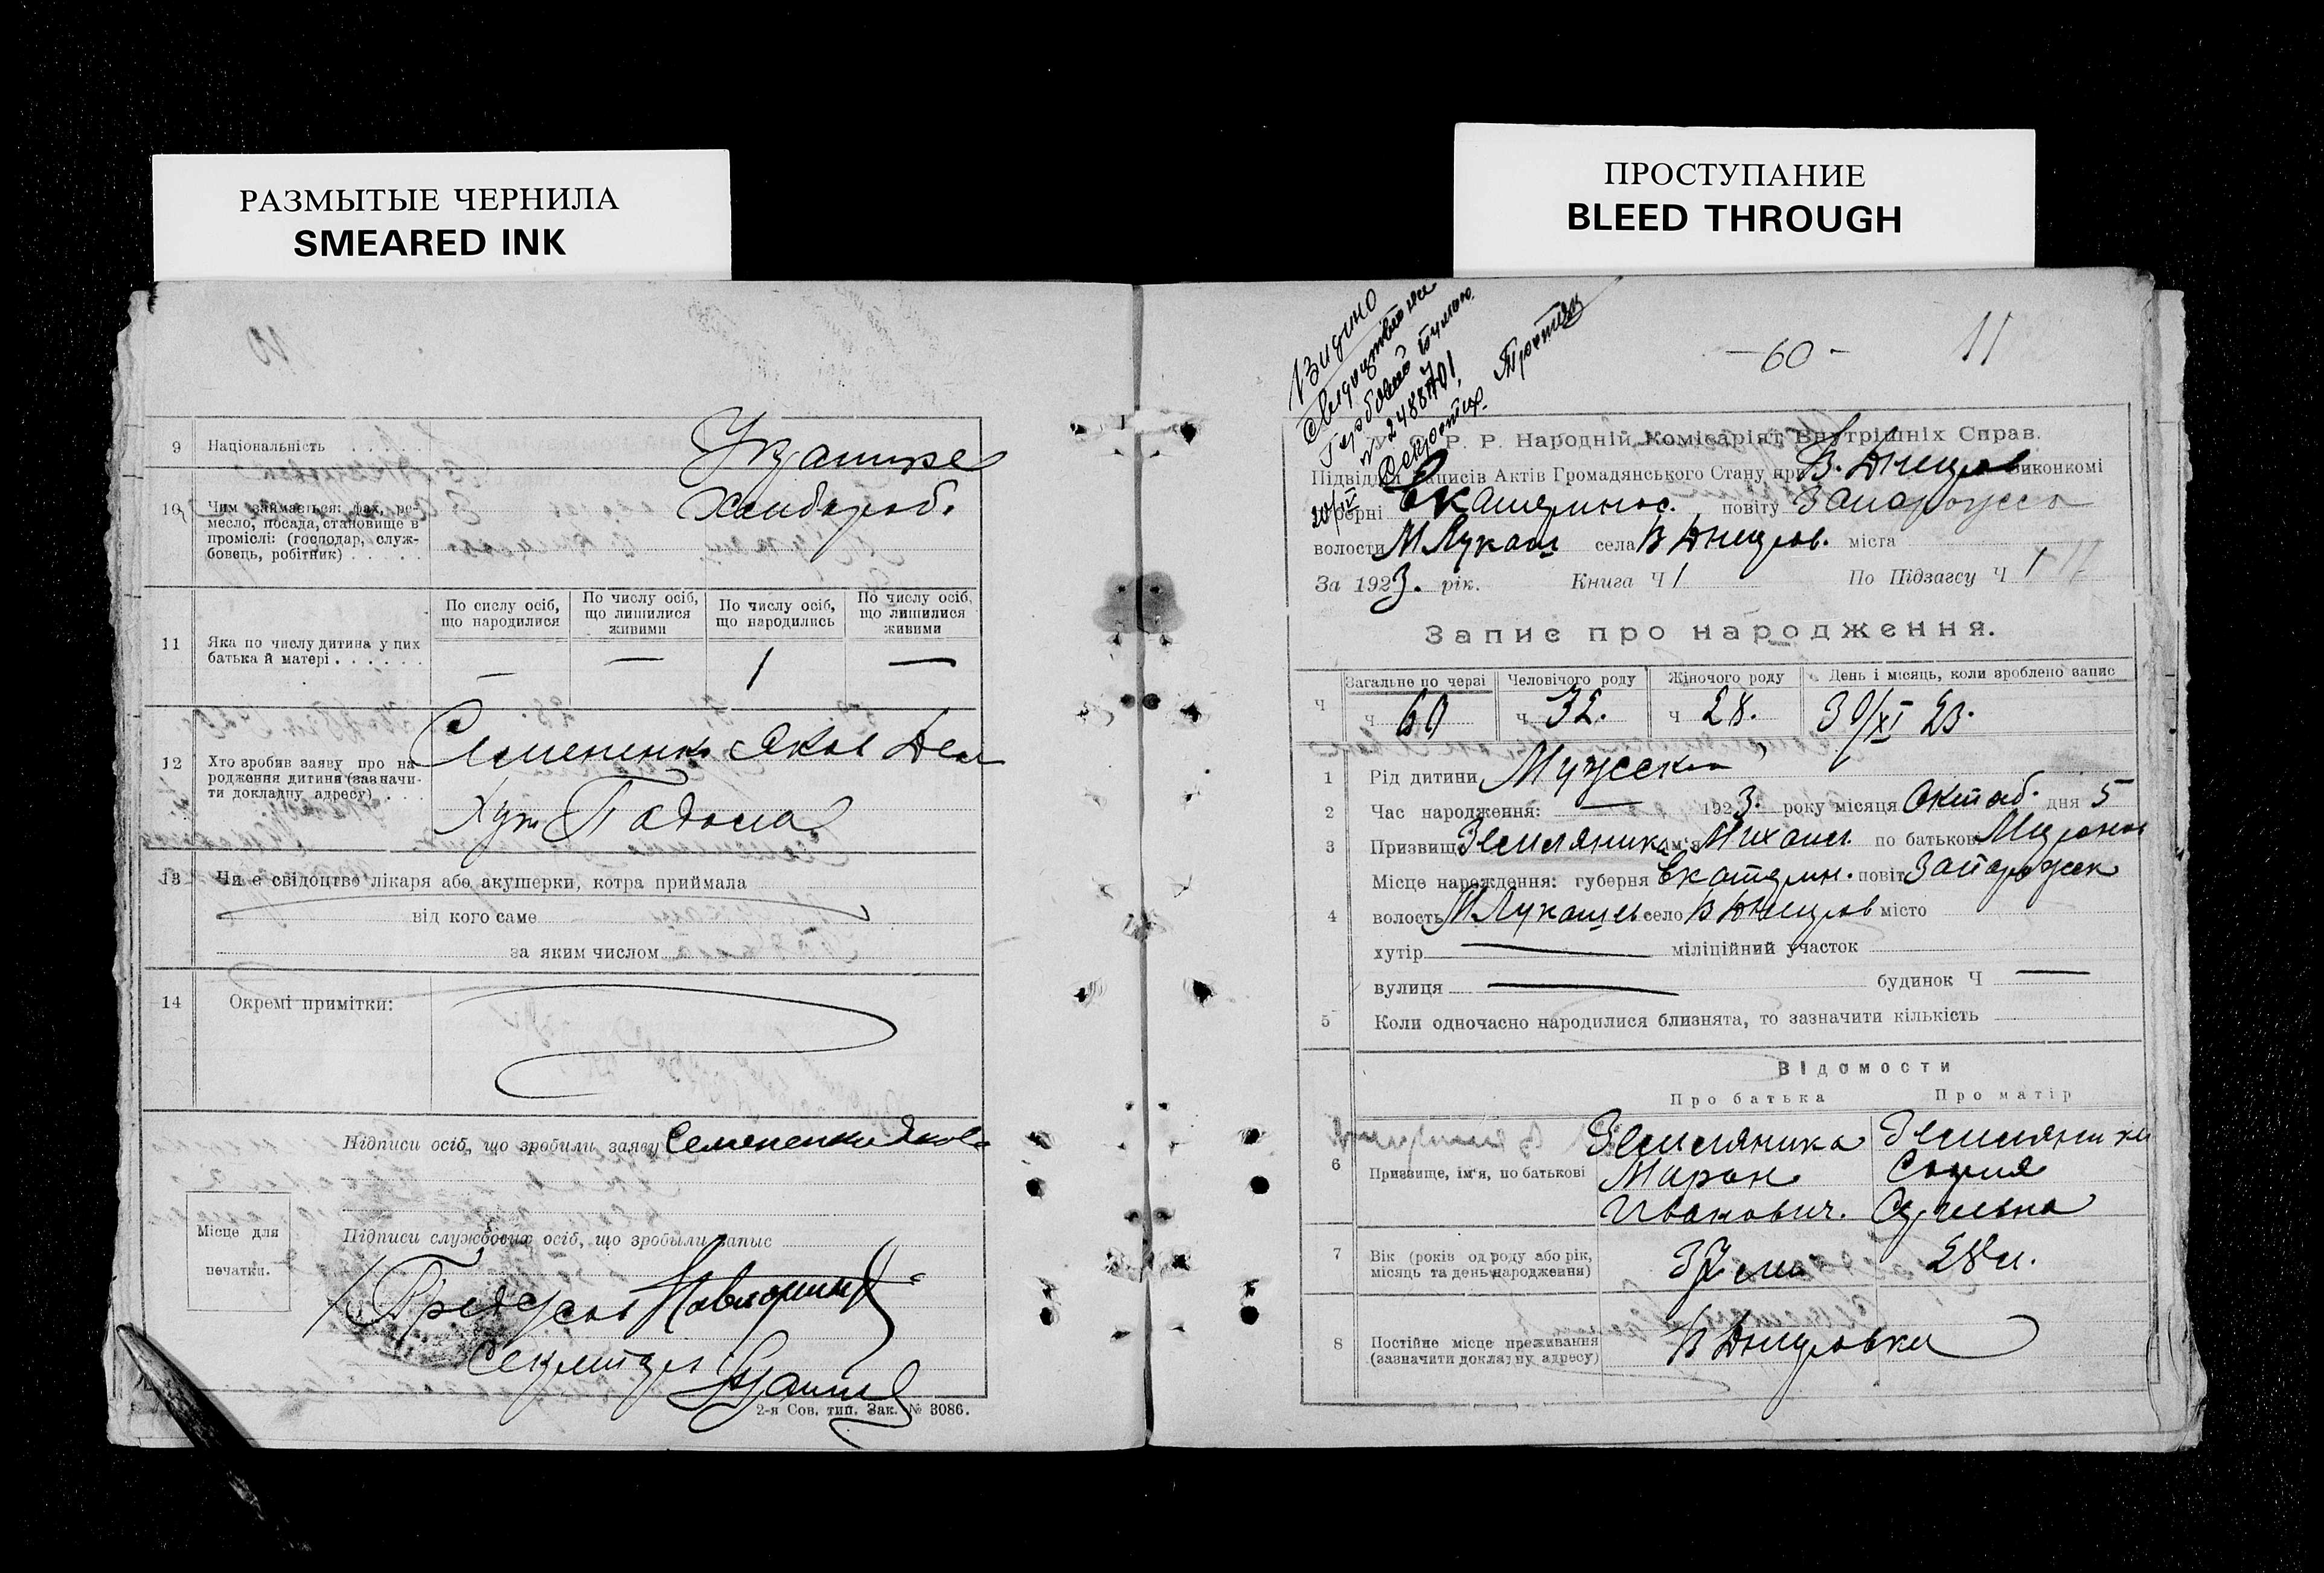 РАЗМЫТЫЕ ЧЕРНИЛА
SMEARED INK
ПРОСТУПАНИЕ
BLEED THROUGH
9 Національність
10 Чим займається: фах, ре-
месло, посада, становище в
промислі: (господар, служ-
бовець, робітник)
Хлибороб.
11 Яка по числу дитина у цих
батька й матері
По сислу осіб,
що народилися
По числу осіб,
що лишилися
живими
По числу осіб,
що народились
По числу осіб,
що лишилися
живими
— — 1 —
12 Хто зробив заяву про на-
родження дитини (зазначи-
ти докладну адресу)
Семененко Яков
Хут
13 Чи є свідоцтво лікаря або акушерки, котра приймала
від кого саме
за яким числом
14 Окремі примітки:
Підписи осіб, що зробили заяву Семененко Яков
Місце для
печатки.
Підписи службових осіб, що зробили запис
Секретарь
2-я Сов. тип. Зак. № 3086.
Видано
—60— 11
Р. Р. Народній Комісаріят Внутрішніх Справ.
Підвідділ Записів Актів Громадянського Стану при В. Днепров виконкомі
губерні Екатеринос. повіту Запорожско
волости М Лукаш села В Днепров. міста
За 1923. рік. Книга Ч 1 По Підзагсу Ч 1
Запис про народження.
Ч Загальне по черзі Человічого роду Жіночого роду День і місяць, коли зроблено запис
ч 60 ч 32. ч 28. 30/XI 23.
1 Рід дитини Мужской
2 Час народження: — 1923. року місяця Октяб. дня 5
3 Призвище Земляника ім'я Михаил. по батькові Мирон
Місце народження: губерня Екатерин. повіт Запорожск
4 волость М Лукаш село В Днепров місто
хутір — міліційний участок
вулиця — будинок Ч —
5 Коли одночасно народилися близнята, то зазначити кількість
Відомости
Про батька Про матір
6 Призвище, ім'я, по батькові
Земляника Земляника
Мирон София
Иванович.
7 Вік (років од роду або рік,
місяць та день народження)
28 л.
8 Постійне місце преживання
(зазначити докладну адресу)
В Днепровка